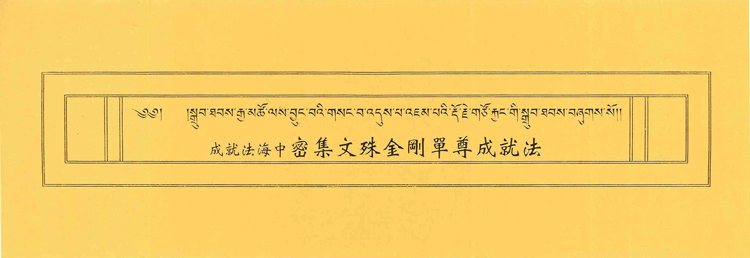 ༄༅། །སྒྲུབ་ཐབས་རྒྱ་མཚོ་ལས་བྱུང་བའི་གསང་བ་འདུས་པ་འཇམ་པའི་རྡོ་རྗེ་གཙོ་རྐྱང་གི་སྒྲུབ་ཐབས་བཞུགས་སོ། །
成就法海中密集文殊金剛單尊成就法